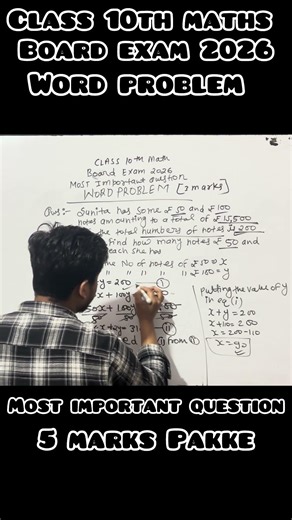 Class 10th maths
Board exam 2026
Word problem
CLASS 10TH Math
Board Exam 2026
Most Important Question
WORD PROBLEM [3 marks]
Ques:- Sunita has some ₹ 50 and ₹100
notes amounting to a total of ₹ 15,500
the total numbers of notes is 200
find how many notes of ₹ 50 and
each she has
No of notes of ₹ 50 = x
" " " " " ₹ 100 = y
y = 200 — (i)
x + 100y
50x + 100y
x + 2y = 31 — (ii)
from (i)
putting the value of y
in eq (i)
x + y = 200
x + 110 = 200
x = 200 - 110
x = 90
Most important question
5 marks Pakke